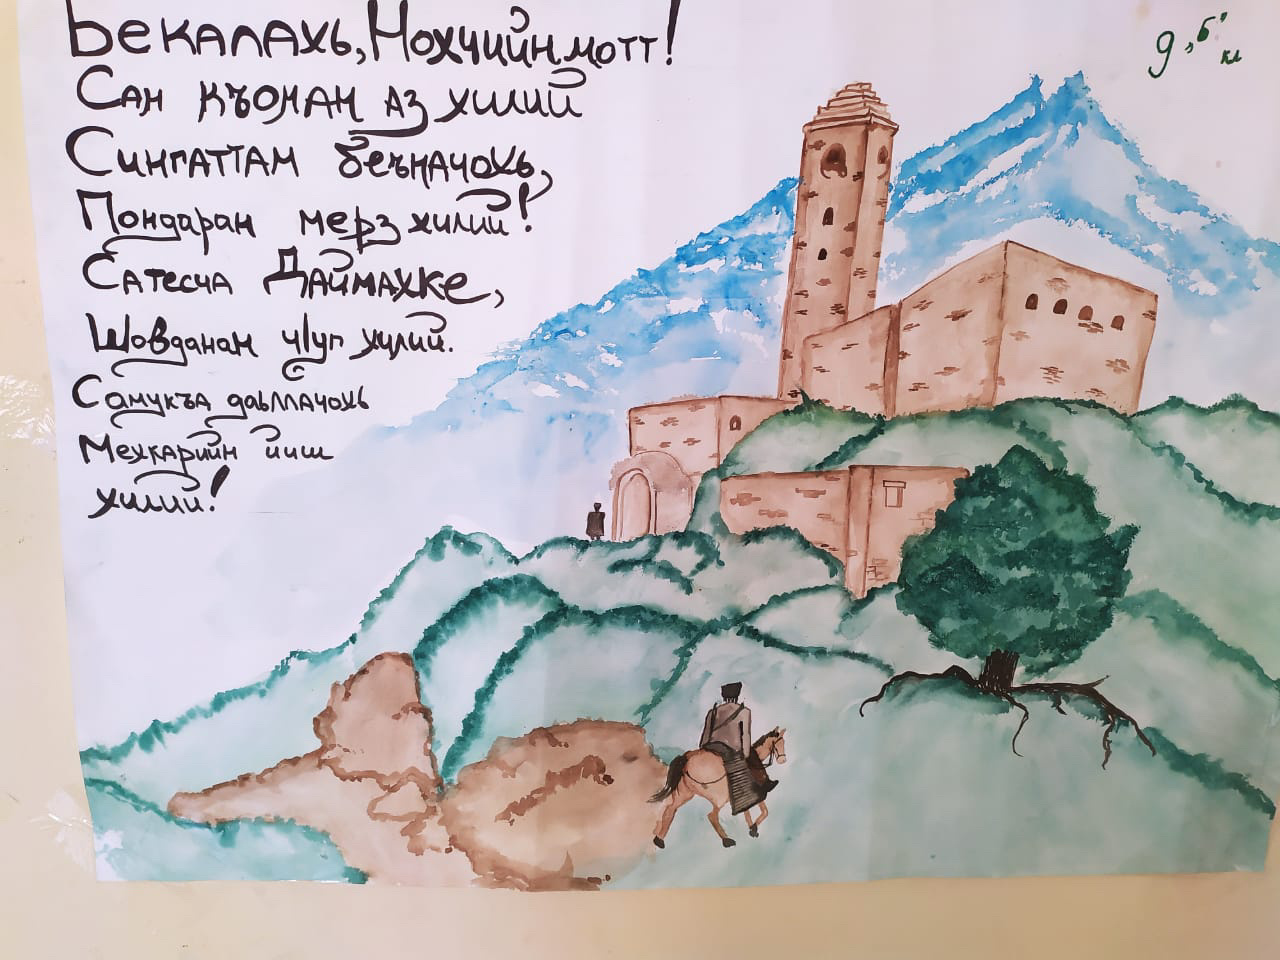 Ьекалахь, Нохчийн мотт!
Сан къоман аз хилий
Сингаттам беъначохь,
Пондаран мерз хилий!
Сатесча Даймахке,
Шовданан чӏуг хилий.
Самукъа даьллачохь
Мехкарийн йиш
хилий!
9 "Б" кл